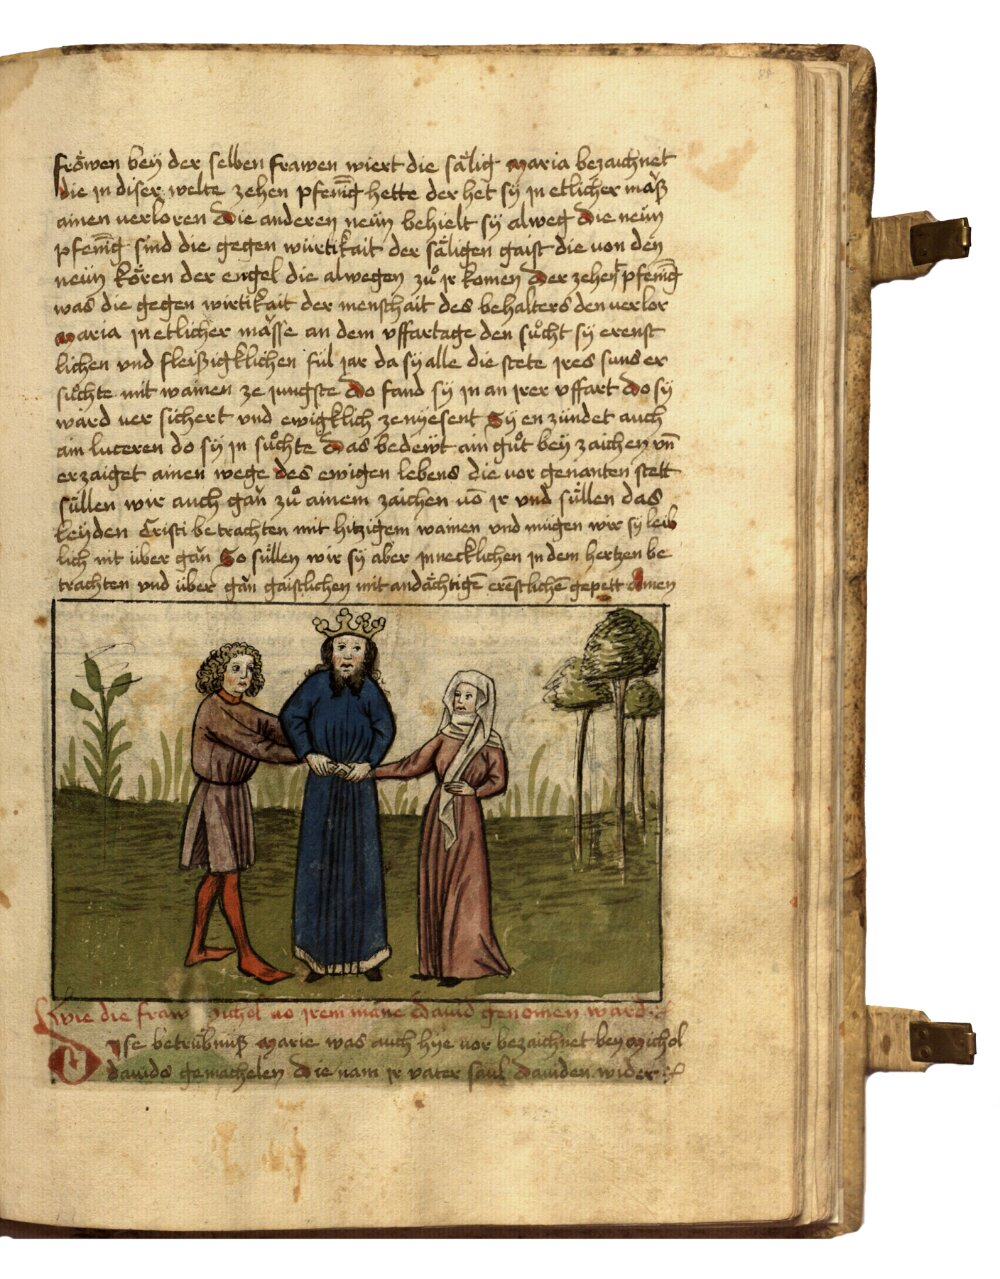 88
fröwen beÿ der selben frawen wiert die sälig maria bezaichnet
die in diser welte zehen pfenīg hette der het sÿ in etlicher mäß
ainen verloren Die anderen neün behielt sÿ alweg Die neün
pfenīg sind die gegen würtikait der säligen gaist die von den
neün kören der engel die alwegen zů jr komen Der zehent pfenīg
was die gegen wirtikait der menschait des behalters den verlor
maria jn etlicher mässe an dem vffartage den sůcht sÿ ernst
lichen vnd fleißigklichen fül jar da sÿ alle die stete jres suns er
sůchte mit wainen ze jungste Do fand sÿ in an jrer vffart Do sÿ
ward ver sichert vnd ewigklich ze nyesent Sÿ en zündet auch
ain luceren do sÿ jn sůchte Das bedewt ain gůt beÿ zaichen vn̄
erzaiget ainen wege des ewigen lebens die vor genanten stett
süllen wir auch gan̄ zů ainem zaichen vō jr vnd süllen das
leÿden Cristi betrachten mit hitzigem wainen vnd mügen wir sÿ leib
lich nit über gan̄ So süllen wir sÿ aber jnnecklichen jn dem hertzen be
trachten vnd über gan̄ gaistlichen mit andächtigē erēstlichē gepett Amen
Wie die fraw Michol vō jrem mane Dauid genomen ward
Dise betrübnuß Marie was auch hÿe vor bezaichnet beÿ Michol
dauids gemachelen Die nam jr vater saul dauiden wider